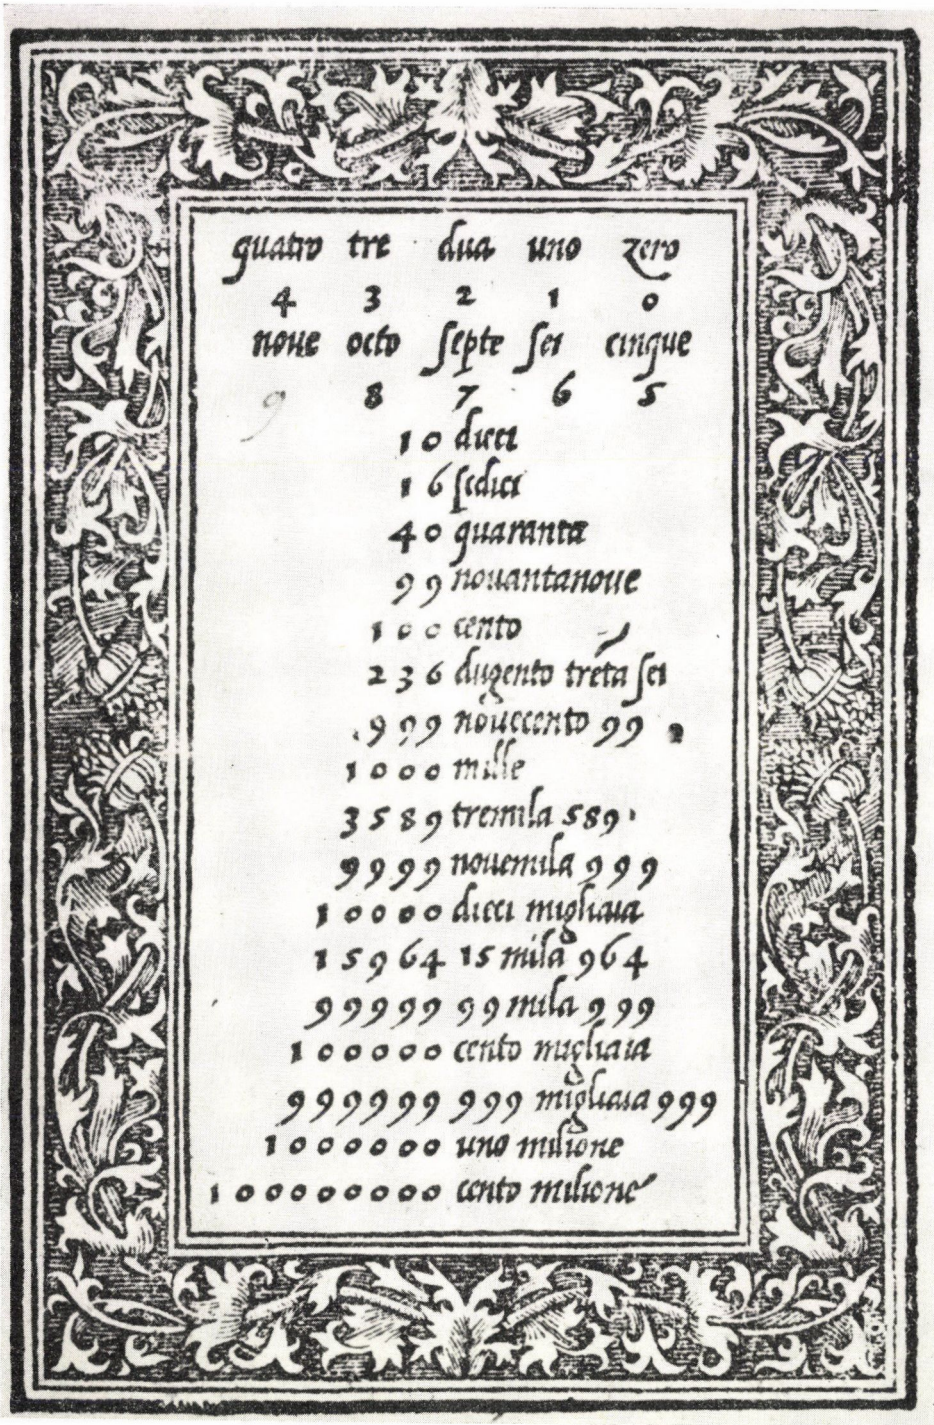 quatro tre dua uno zero
4 3 2 1 0
noue octo septe sei cinque
9 8 7 6 5
10 dieci
16 sedici
40 quaranta
99 nouantanoue
100 cento
236 dugento trēta sei
999 nouecento 99
1000 mille
3589 tremila 589
9999 nouemila 999
10000 dieci migliaia
15964 15 mila 964
99999 99 mila 999
100000 cento migliaia
999999 999 migliaia 999
1000000 uno milione
100000000 cento milione